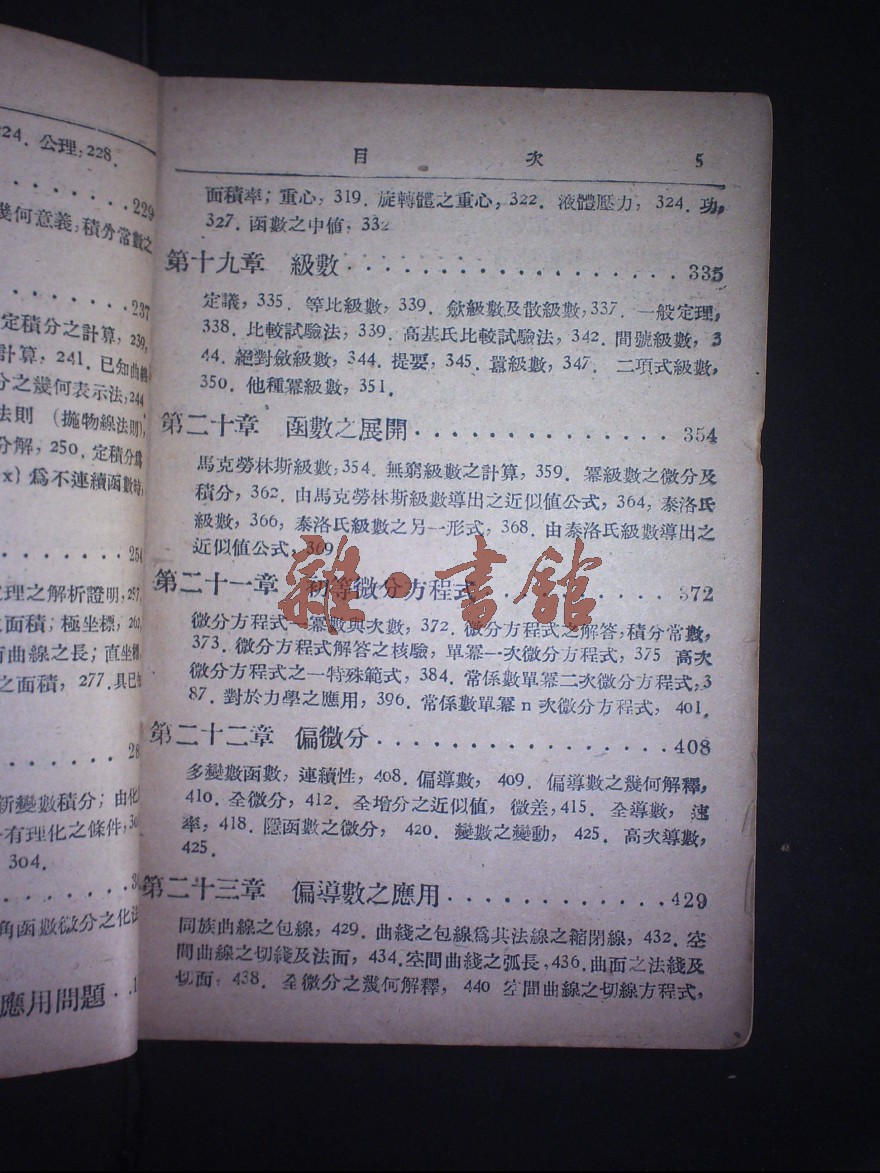 24．公理，228．
229
幾何意義，積分常數之
237
定積分之計算，239，
計算，241．已知曲線
分之幾何表示法，244
法則 （拋物線法則），
分解，250．定積分為
x）為不連續函數時，
254
理之解析證明，257，
面積；極坐標，262，
有曲線之長；直坐標，
之面積，277．具已知
28
新變數積分；由化
有理化之條件，30
304．
30
角函數微分之化法
應用問題
目 次 5
面積率；重心，319．旋轉體之重心，322．液體壓力，324．功，
327．函數之中値，332
第十九章 級數 335
定議，335．等比級數，339．歛級數及散級數，337．一般定理，
338．比較試驗法，339．高基氏比較試驗法，342．間號級數，3
44．絕對歛級數，344．提要，345．羃級數，347． 二項式級數，
350．他種冪級數，351．
第二十章 函數之展開 354
馬克勞林斯級數，354．無窮級數之計算，359．冪級數之微分及
積分，362．由馬克勞林斯級數導出之近似値公式，364，泰洛氏
級數，366，泰洛氏級數之另一形式，368．由泰洛氏級數導出之
近似値公式，369
雜·書館
第二十一章 初等微分方程式 372
微分方程式一冪數與次數，372．微分方程式之解答；積分常數，
373．微分方程式解答之核驗，單冪一次微分方程式，375 高次
微分方程式之一特殊範式，384．常係數單冪二次微分方程式，3
87．對於力學之應用，396．常係數單冪 n 次微分方程式，401．
第二十二章 偏微分 408
多變數函數，連續性，408．偏導數，409．偏導數之幾何解釋，
410．全微分，412．全增分之近似値，微差，415．全導數，速
率，418．隱函數之微分，420．變數之變動，425．高次導數，
425．
第二十三章 偏導數之應用 429
同族曲線之包線，429．曲綫之包線為其法線之縮閉線，432．空
間曲線之切綫及法面，434．空間曲綫之弧長，436．曲面之法綫及
切面，438．全微分之幾何解釋，440 空間曲線之切線方程式，